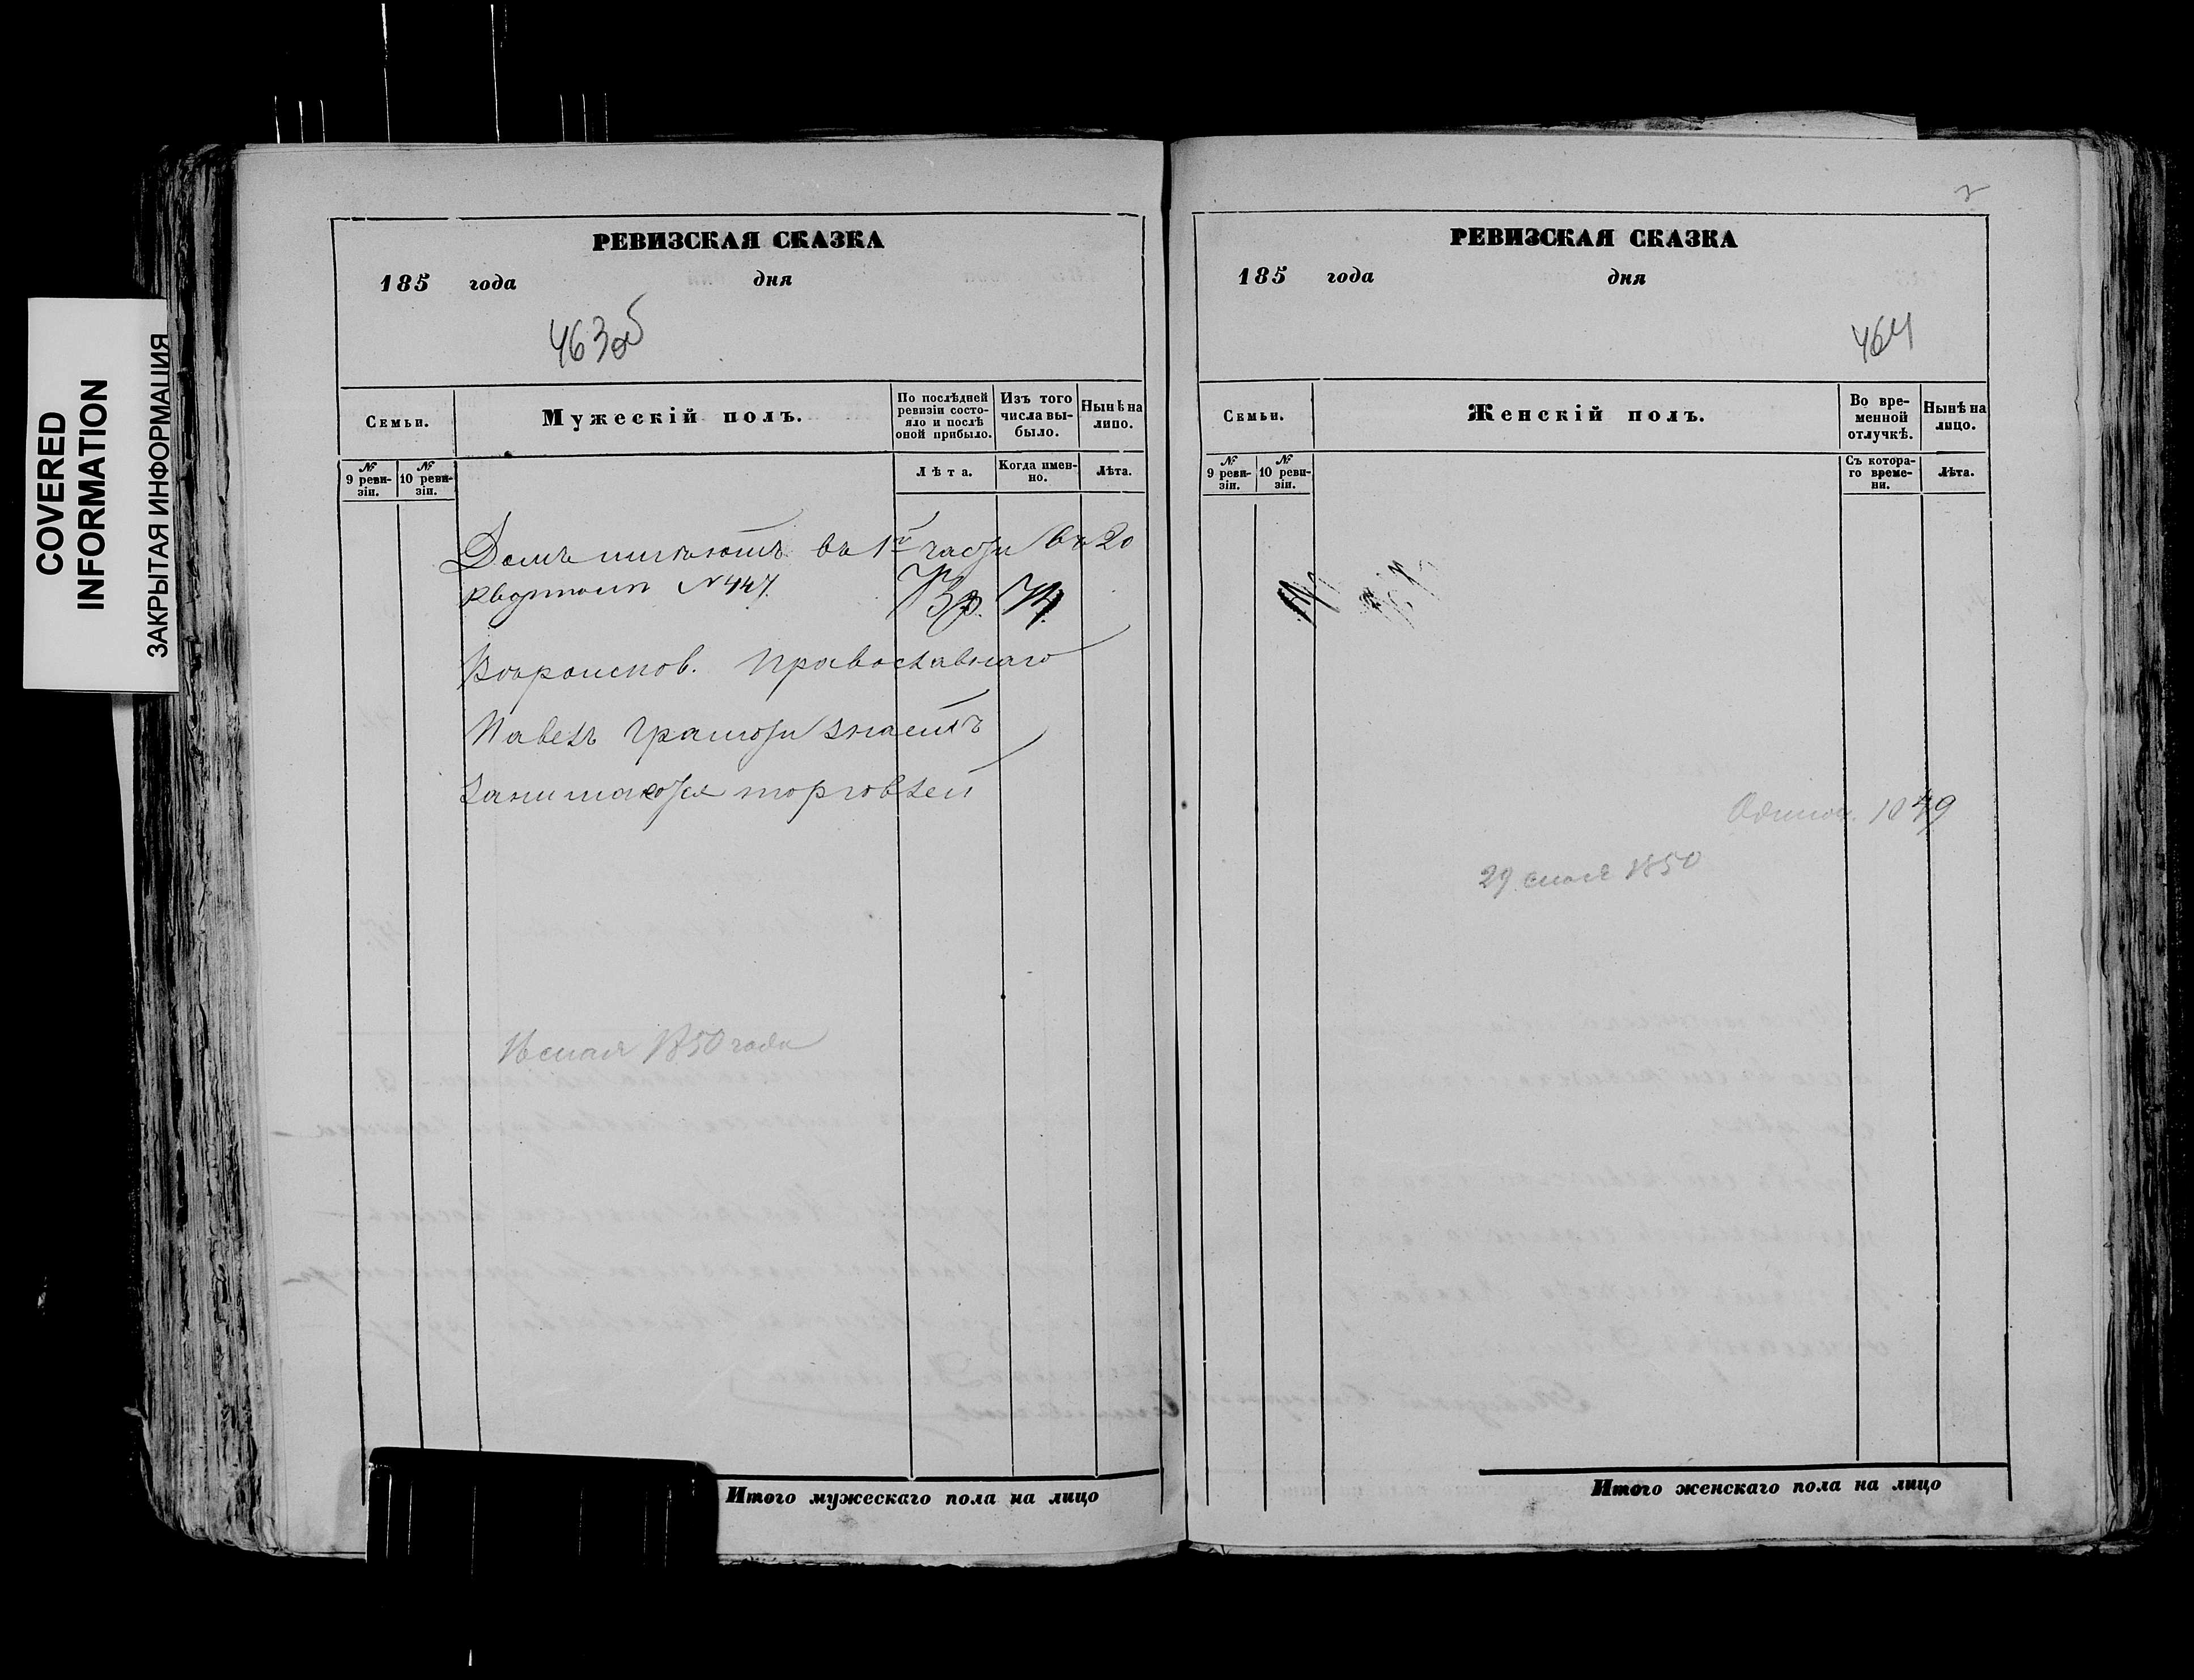 COVERED
INFORMATION
ЗАКРЫТАЯ ИНФОРМАЦИЯ
РЕВИЗСКАЯ СКАЗКА
185 года дня
463 об
Семьи.
Мужескій полъ.
По послѣдней ревизіи состояло и послѣ оной прибыло.
Изъ того числа выбыло.
Нынѣ на лицо.
№ 9 ревизіи.
№ 10 ревизіи.
Лѣта.
Когда именно.
Лѣта.
Домъ имѣютъ въ 1й части въ 20
квартале N 447.
Вѣроиспов. Православнаго
Павелъ грамоти знаетъ
Занимаются торговлей
1850 года
Итого мужескаго пола на лицо
РЕВИЗСКАЯ СКАЗКА
185 года дня
464
Семьи.
Женскій полъ.
Во временной отлучкѣ.
Нынѣ на лицо.
№ 9 ревизіи.
№ 10 ревизіи.
Съ котораго времени.
Лѣта.
29 1850
Итого женскаго пола на лицо